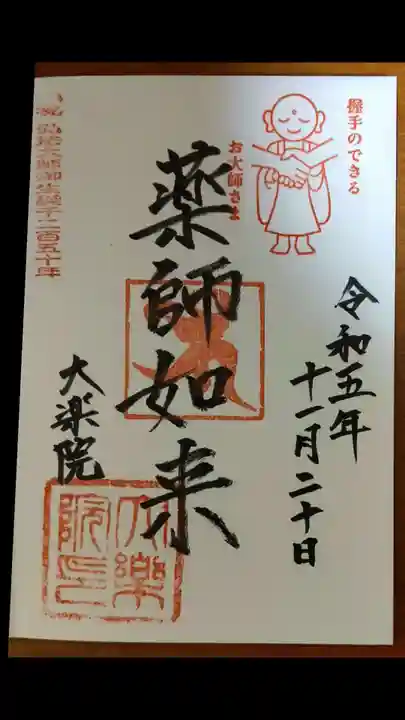 握手のできる
お大師さま
令和五年
十一月二十日
薬師如来
大楽院
弘法大師御生誕千二百五十年
大樂院印